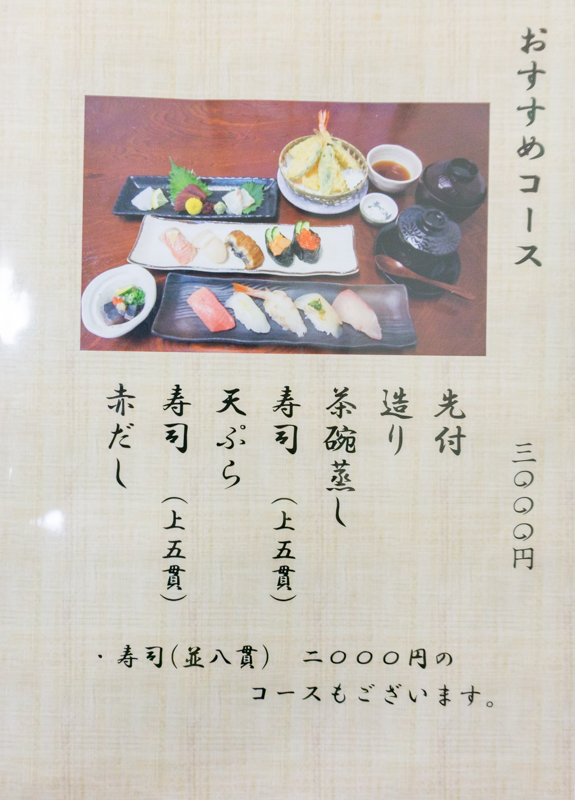 おすすめコース
三〇〇〇円
先付
造り
茶碗蒸し
寿司（上五貫）
天ぷら
寿司（上五貫）
赤だし
・寿司（並八貫）　二〇〇〇円の
コースもございます。